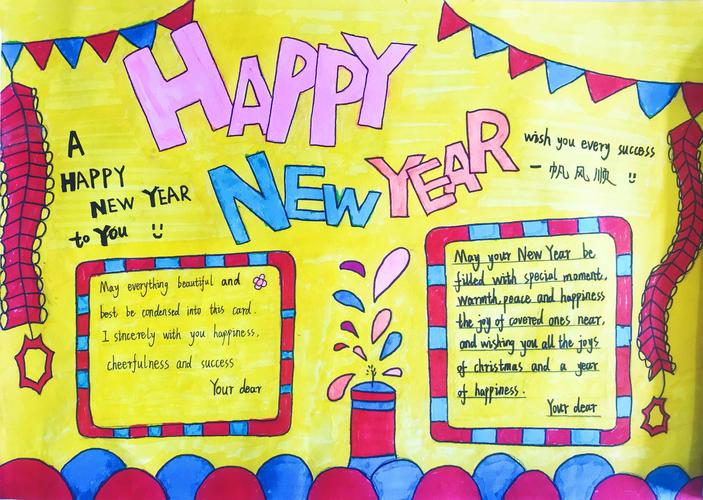 HAPPY
NEW YEAR
A
HAPPY
NEW YEAR
to You
wish you every success
一帆风顺
May everything beautiful and
best be condensed into this card.
I sincerely with you happiness,
cheerfulness and success
Your dear
May your New Year be
filled with special moment,
warmth, peace and happiness
the joy of covered ones near,
and wishing you all the joys
of christmas and a year
of happiness.
Your dear